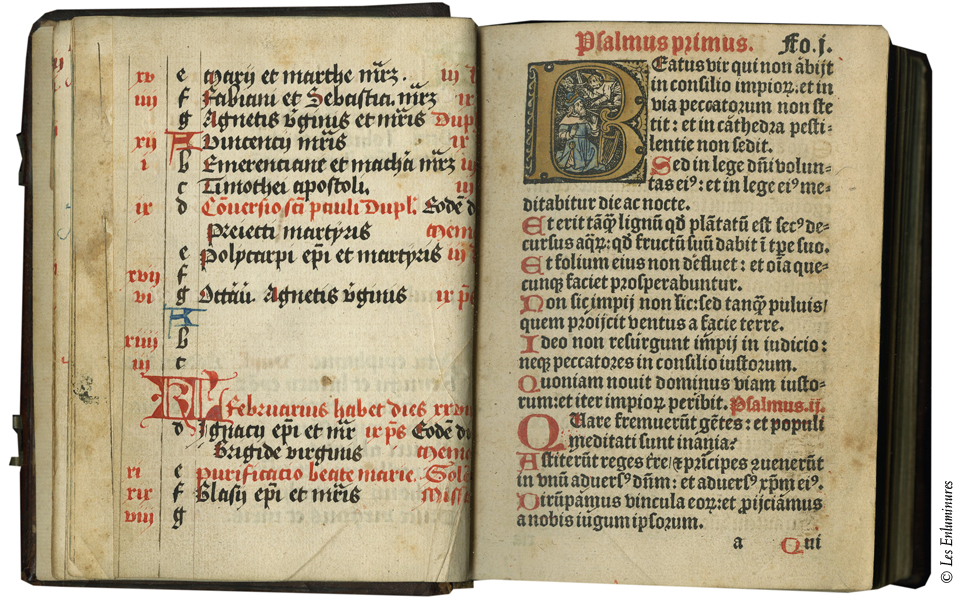 xv e Marij et marthe m̄rꝫ. iij
iiij f Fabiani et Sebastia. m̄rꝫ ix
g Agnetis v̄ginis et m̄ris Dupl
xij A Vincentij m̄ris ix
i b Emerenciane et macha m̄rꝫ
c Timothei apostoli. iij
ix d Cōversio scī pauli Dupl. Eodē d
Preiecti martyris Mem
e Polycarpi ep̄i et martyris iij
xvij f
vi g Octāu. Agnetis v̄ginis ix p̄s
A
xiiij b
iij c
KL Februarius habet dies xxvii
d Ignacij ep̄i et m̄r ix p̄s Eodē di
Brigide virginis Mem
xi e Purificatio beate marie. Sol
xix f Blasij ep̄i et m̄ris Missa
viij g
Psalmus primus. Fo.j.
Beatus vir qui non abijt
in consilio impioꝝ. et in
via peccatorum non ste
tit : et in cathedra pesti-
lentie non sedit.
Sed in lege dn̄i volun-
tas eiꝰ : et in lege eiꝰ me-
ditabitur die ac nocte.
Et erit tāꝙ lignū qd̄ plātatū est secꝰ de-
cursus aqꝝ: qd̄ fructū suū dabit ī tp̄e suo.
Et folium eius non defluet : et oīa que-
cunqꝫ faciet prosperabuntur.
Non sic impij non sic: sed tanꝙ puluis/
quem proijcit ventus a facie terre.
Ideo non resurgunt impij in iudicio :
neqꝫ peccatores in consilio iustorum.
Quoniam nouit dominus viam iusto-
rum: et iter impioꝝ peribit. Psalmus.ij.
Quare fremuerūt gētes : et populi
meditati sunt inania?
Astiterūt reges t̄re/ ⁊ prīcipes ꝯuenerūt
in vnū aduersꝰ dn̄m: et aduersꝰ xp̄m eiꝰ.
Dirūpamus vincula eoꝝ: et ꝓijciāmus
a nobis iugum ipsorum.
a Qui
© Les Enluminures